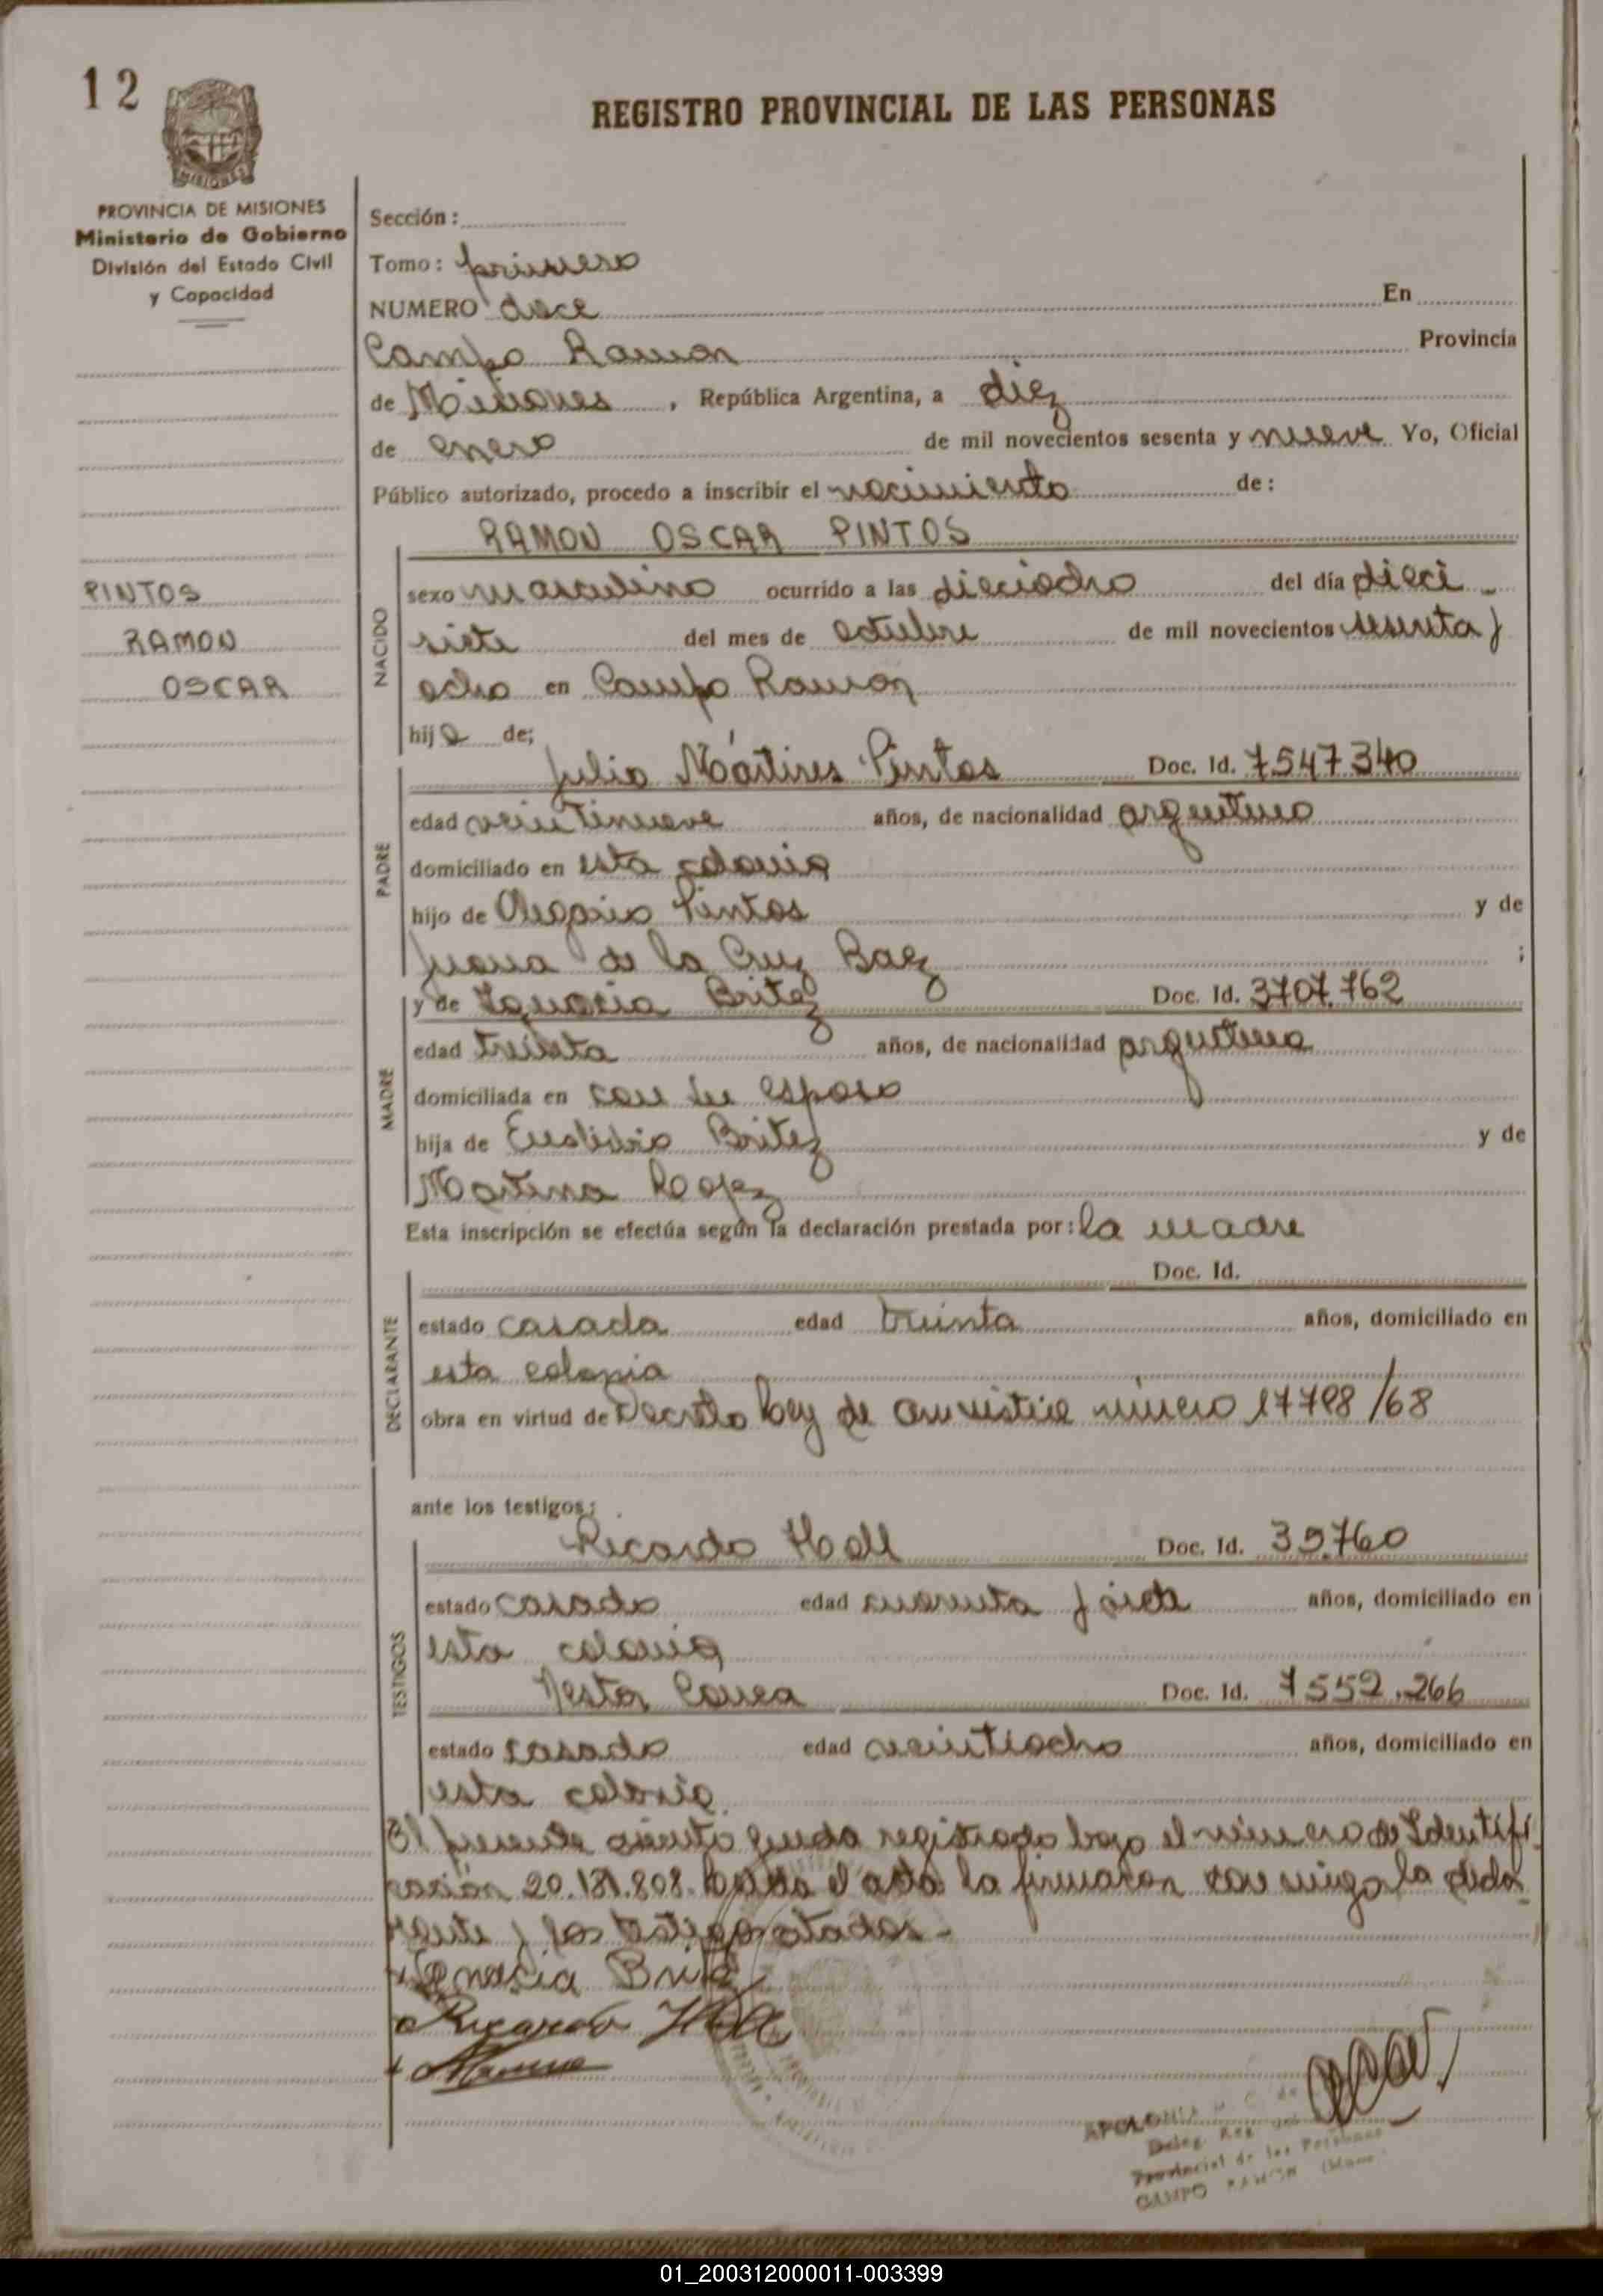 12
MISIONES
REGISTRO PROVINCIAL DE LAS PERSONAS
PROVINCIA DE MISIONES
Ministerio de Gobierno
División del Estado Civil
y Capacidad
Sección:
Tomo: primero
NUMERO doce En
Campo Ramon Provincia
de Misiones, República Argentina, a diez
de enero de mil novecientos sesenta y nueve Yo, Oficial
Público autorizado, procedo a inscribir el nacimiento de:
RAMON OSCAR PINTOS
PINTOS
RAMON
OSCAR
NACIDO
sexo masculino ocurrido a las dieciocho del día dieci
siete del mes de octubre de mil novecientos sesenta y
ocho en Campo Ramon
hijo de;
PADRE
Julio Mártires Pintos Doc. Id. 7547340
edad veintinueve años, de nacionalidad argentino
domiciliado en esta colonia
hijo de Olegario Pintos y de
Juana de la Cruz Baez ;
MADRE
y de Ignacia Britez Doc. Id. 3707.762
edad treinta años, de nacionalidad argentina
domiciliada en con su esposo
hija de Britez y de
Martina Lopez
Esta inscripción se efectúa según la declaración prestada por: la madre
DECLARANTE
Doc. Id.
estado casada edad treinta años, domiciliado en
esta colonia
obra en virtud de Decreto ley de amnistia número /68
ante los testigos:
TESTIGOS
Ricardo Hall Doc. Id. 39760
estado casado edad cuarenta y siete años, domiciliado en
esta colonia
Nestor Correa Doc. Id. 7552.266
estado casado edad veintiocho años, domiciliado en
esta colonia
El presente asiento queda registrado bajo el número de Identifi
cación 20.181.808. el acta la firmaron conmigo la decla
rante y los testigos citados.-
Ignacia Britez
Ricardo Hall
APOLONIA
Deleg. Reg.
Provincial de las Personas
CAMPO RAMON
01_200312000011-003399